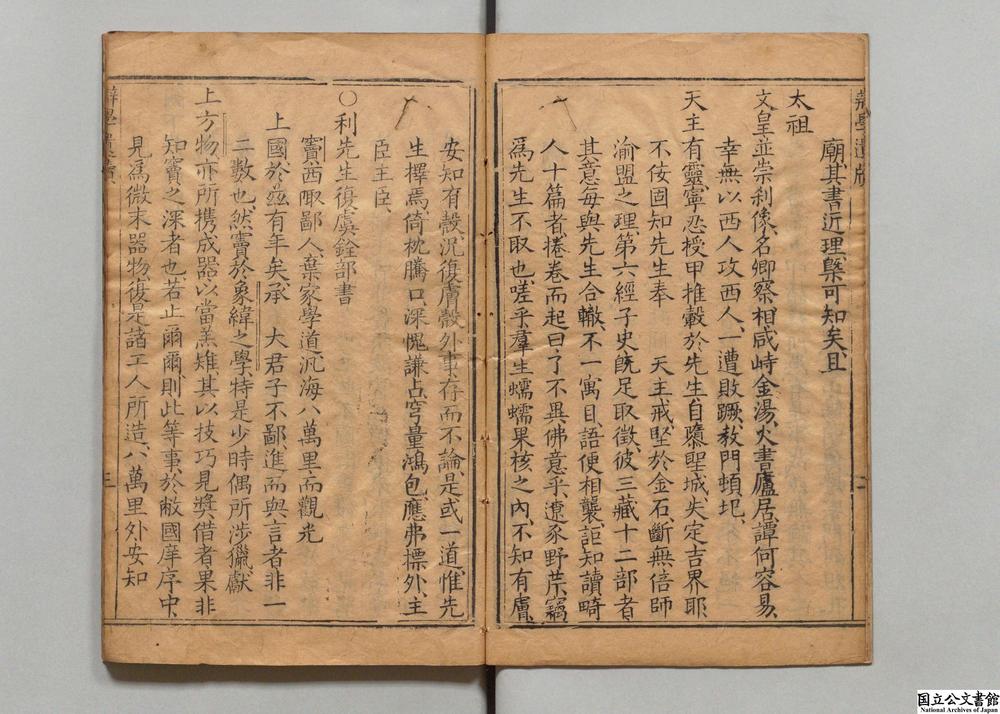 廟其書近理槩可知矣且
太祖
文皇並崇利像名卿察相咸峙金湯火書廬居譚何容易
幸無以西人攻西人一遭敗蹶教門頓圮
天主有靈寧忍授甲推轂於先生自隳聖城失定吉界耶
不佞固知先生奉　天主戒堅於金石斷無倍師
渝盟之理第六經子史旣足取徵彼三藏十二部者
其意每與先生合轍不一寓目語便相襲詎知讀畸
人十篇者掩卷而起曰了不異佛意乎遼豕野芹竊
爲先生不取也嗟乎羣生蠕蠕果核之內不知有膚
安知有殼況復膚殼外事存而不論是或一道惟先
生擇焉倚枕騰口深愧謙占穹量鴻包應弗標外主
臣主臣
〇利先生復虞銓部書
竇西陬鄙人棄家學道汎海八萬里而觀光
上國於茲有年矣承　大君子不鄙進而與言者非一
二數也然竇於象緯之學特是少時偶所涉獵獻
上方物亦所攜成器以當羔雉其以技巧見奬借者果非
知竇之深者也若止爾爾則此等事於敝國庠序中
見爲微末器物復是諸工人所造八萬里外安知
辨學遺牘
三
国立公文書館
National Archives of Japan